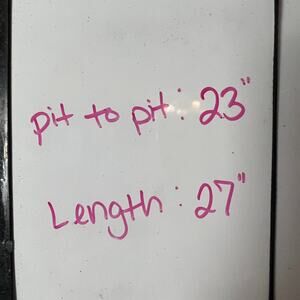 pit to pit: 23"
Length: 27"